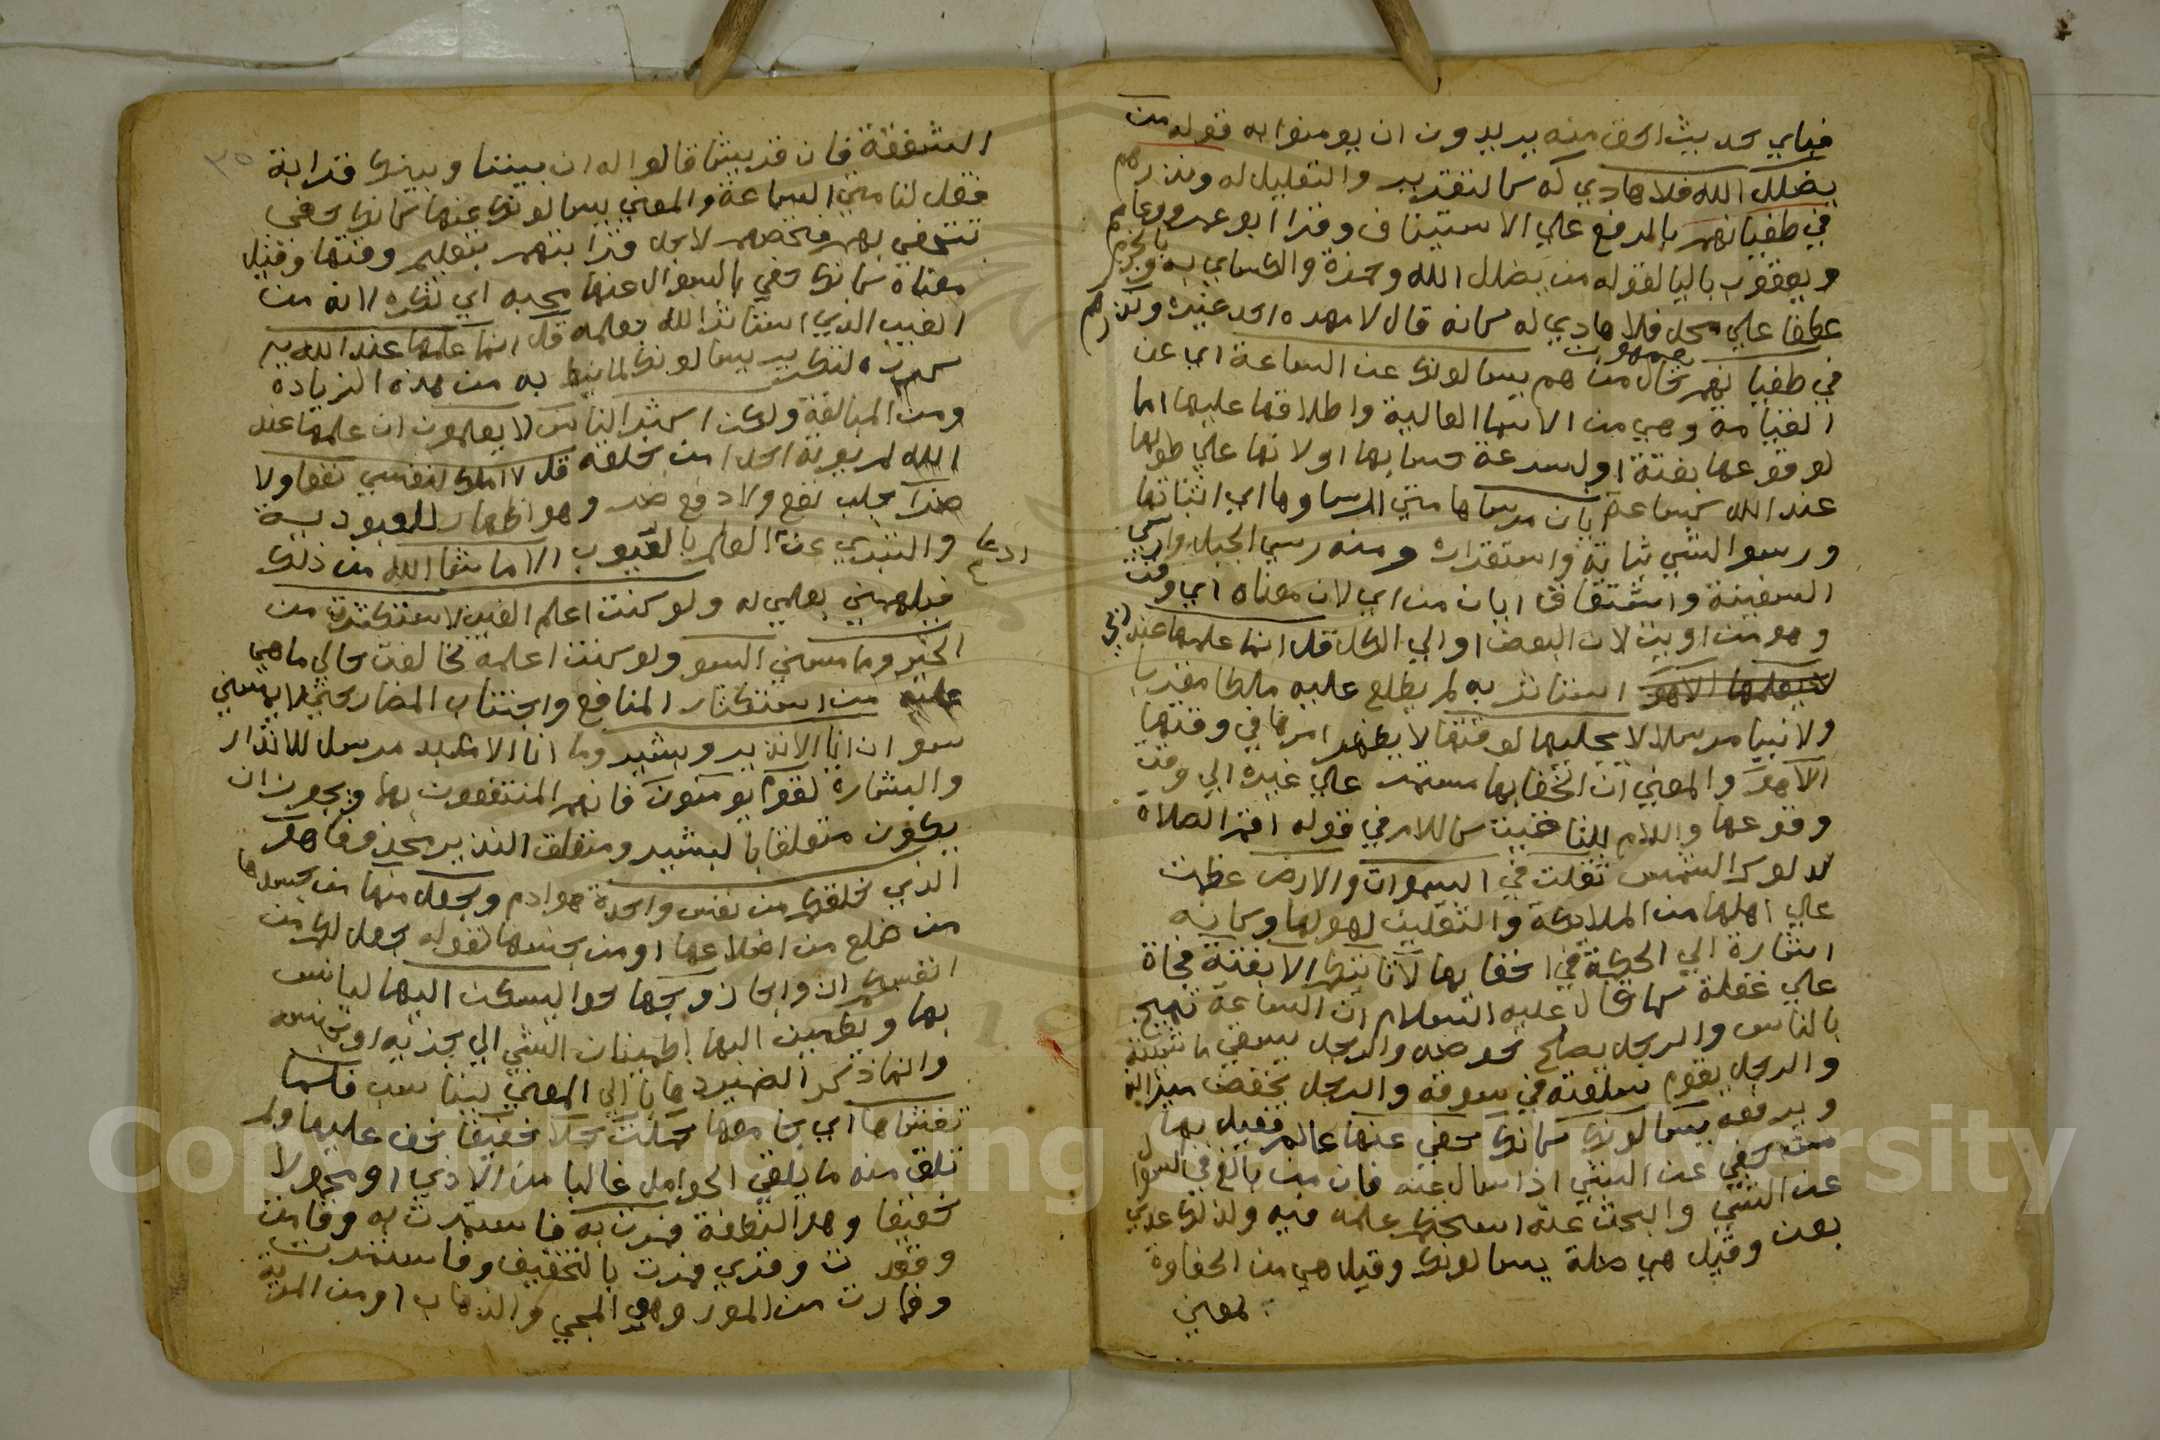 فباي حديث احق منه يريدون ان يومنوا به قوله من
يضلل الله فلا هادي له كالتقرير والتعليل له ونذرهم
في طغيانهم بالرفع علي الاستيناف وقرا ابو عمرو وعاصم
ويعقوب باليا لقوله من يضلل الله وحمزة والكساي به وبالجزم
عطفا علي محل فلا هادي له كانه قال لا يهده احد غيره ويذرهم
في طغيانهم يعمهون حال من هم يسالونك عن الساعة اي عن
القيامة وهي من الاسما الغالبة واطلاقها عليها اما
لوقوعها بغتة او لسرعة حسابها او لانها علي طولها
عند الله كساعة ايان مرساها متي ارساوها اي اثباتها
ورسوا الشي ثباته واستقراره ومنه رسي الجبل وارسي
السفينة واشتقاق ايان من اي لان معناه اي وقت
وهو من اويت لان البعض اوالي الكل قل انما علمها عند ربي
لا يعلمها الا هو استاثر به لم يطلع عليه ملكا مقربا
ولا نبيا مرسلا لا يجليها لوقتها لا يظهر امرها في وقتها
الا هو والمعني ان الخفا بها مستمر علي غيره الي وقت
وقوعها واللام للتاقيت كاللام في قوله اقم الصلاة
لدلوك الشمس ثقلت في السموات والارض عظمت
علي اهلها من الملائكة والثقلين لهولها وكانه
اشارة الي الحكمة في اخفايها لا تاتيكم الا بغتة فجاة
علي غفلة كما قال عليه السلام ان الساعة تهيج
بالناس والرجل يصلح حوضه والرجل يسقي ماشيته
والرجل يقوم سلعته في سوقه والرجل يخفض ميزانه
ويرفعه يسالونك كانك حفي عنها عالم فعيل بها
من حفي عن الشي اذا سال عنه فان من بالغ في السوال
عن الشي والبحث عنه استحكم علمه فيه ولذلك عدي
بعن وقيل هي صلة يسالونك وقيل هي من الحفاوة
بمعني
٣٥
الشفقة فان قريشا قالوا له ان بيننا وبينك قرابة
فقل لنا متي الساعة والمعني يسالونك عنها كانك حفي
تتحفي بهم فتخصهم لاجل قرابتهم بتعليم وقتها وقيل
معناه كانك حفي بالسوال عنها تحبه اي تكره لانه من
الغيب الذي استاثر الله بعلمه قل انما علمها عند الله
كرره لتكرير يسالونك لما نيط به من هذه الزيادة
ومن المبالغة ولكن اكثر الناس لا يعلمون ان علمها عند
الله لم يوته احدا من خلقه قل لا املك لنفسي نفعا ولا
ضرا جلب نفع ولا دفع ضر وهو اظهار للعبودية
والتبري عن ادعا العلم بالغيوب الا ما شا الله من ذلك
فيلهمني بعلمي له ولو كنت اعلم الغيب لاستكثرت من
الخير وما مسني السو ولو كنت اعلمه لخالفت حالي ما هي
عليه من استكثار المنافع واجتناب المضار حتي لا يمسني
سو ان انا الا نذير وبشير وما انا الا عبد مرسل للانذار
والبشارة لقوم يومنون فانهم المنتفعون بها ويجوز ان
يكون متعلقا بالبشير ومتعلق النذير محذوفا هو
الذي خلقكم من نفس واحدة هو ادم وجعل منها من جسدها
من ضلع من اضلاعها او من جنسها لقوله جعل لكم من
انفسكم ازواجا زوجها حوا ليسكن اليها ليانس
بها ويطمين اليها اطمينان الشي الي جزيه او جنسه
وانما ذكر الضمير ذهابا الي المعني ليناسب فلما
تغشاها اي جامعها حملت حملا خفيفا خف عليها ولم
تلق منه ما يلقي الحوامل غالبا من الاذي او محمولا
خفيفا وهو النطفة فمرت به فاستمرت به وقامت
وقعدت وقري فمرت بالتخفيف وفاستمرت
وفمارت من المور وهو المجي والذهاب او من المرية